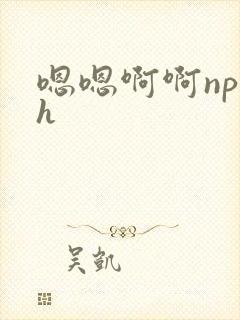 嗯嗯啊啊np
h
吴凯